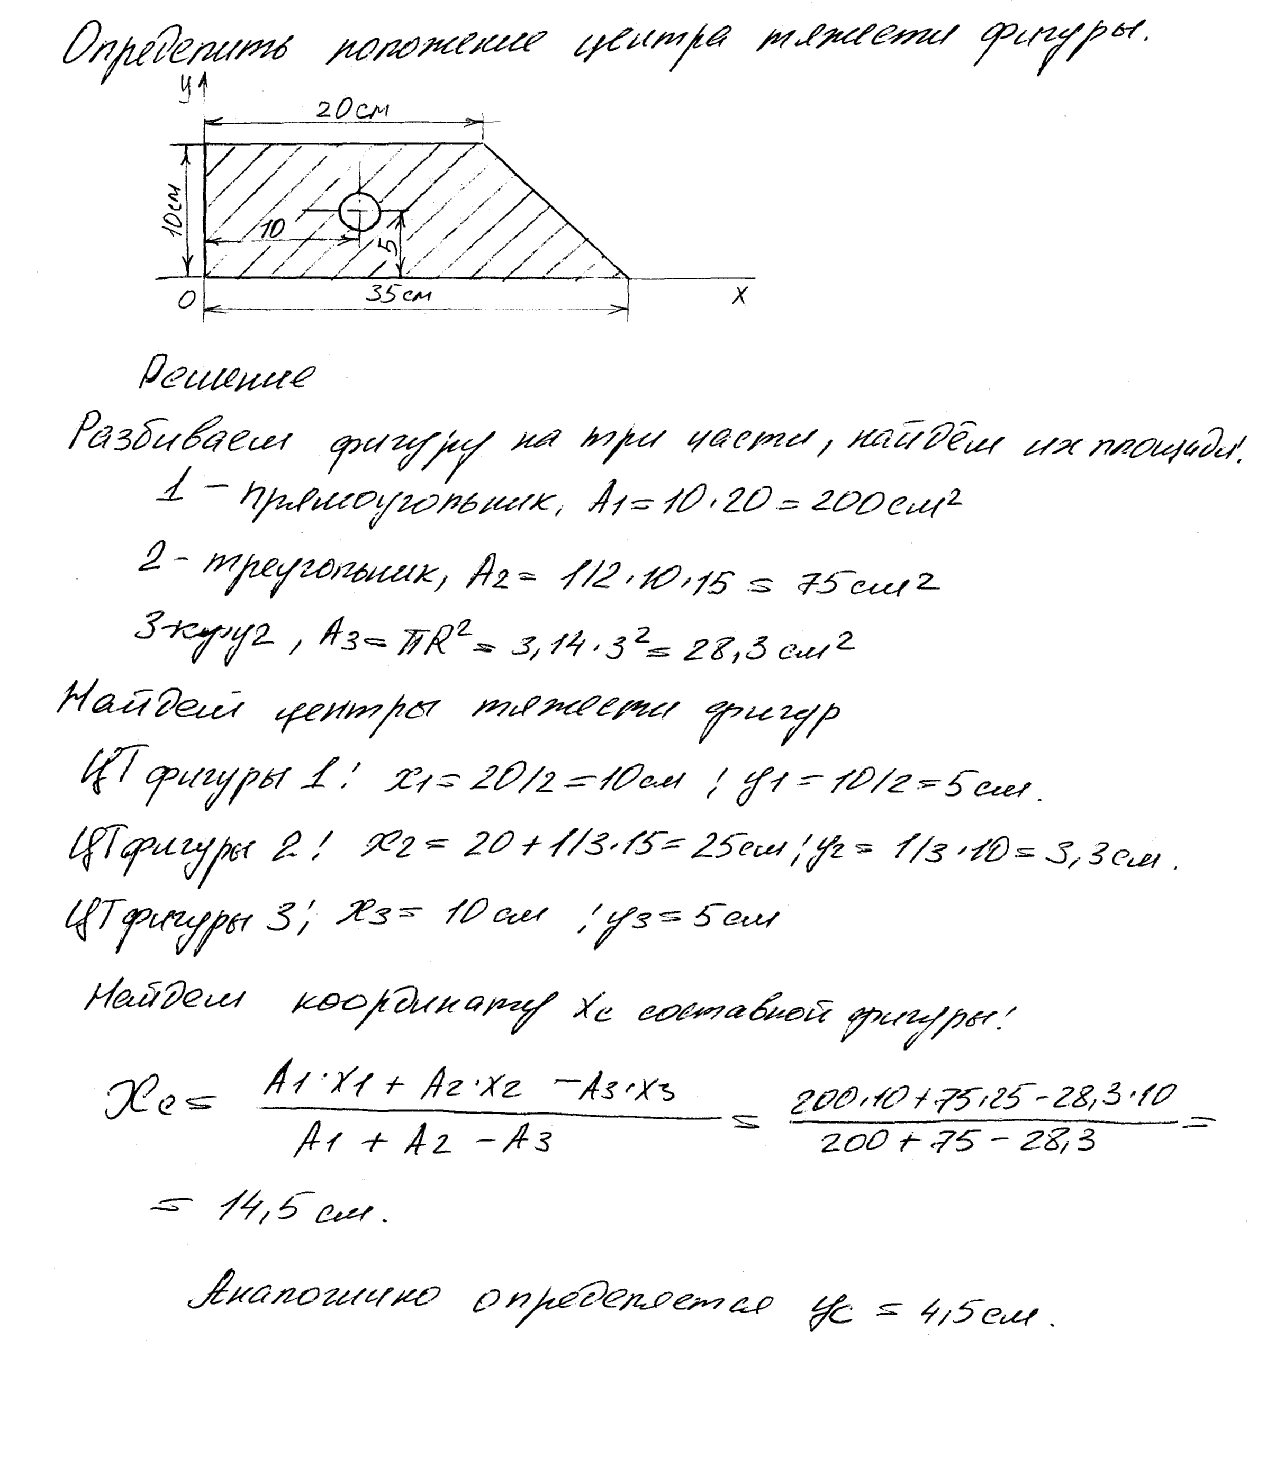 Определить положение центра тяжести фигуры.
y
20см
10см
10
5
0
35см
x
Решение
Разбиваем фигуру на три части, найдём их площади.
1 - прямоугольник, A1 = 10·20 = 200см²
2 - треугольник, A2 = 1/2·10·15 = 75см²
3-круг, A3 = πR² = 3,14·3² = 28,3см²
Найдем центры тяжести фигур
ЦТ фигуры 1: x1 = 20/2 = 10см ; y1 = 10/2 = 5см.
ЦТ фигуры 2: x2 = 20 + 1/3·15 = 25см; y2 = 1/3·10 = 3,3см.
ЦТ фигуры 3: x3 = 10см ; y3 = 5см
Найдем координату Xc составной фигуры:
Xc = (A1·X1 + A2·X2 - A3·X3)/(A1 + A2 - A3) = (200·10 + 75·25 - 28,3·10)/(200 + 75 - 28,3) =
= 14,5 см.
Аналогично определяется yc = 4,5см.